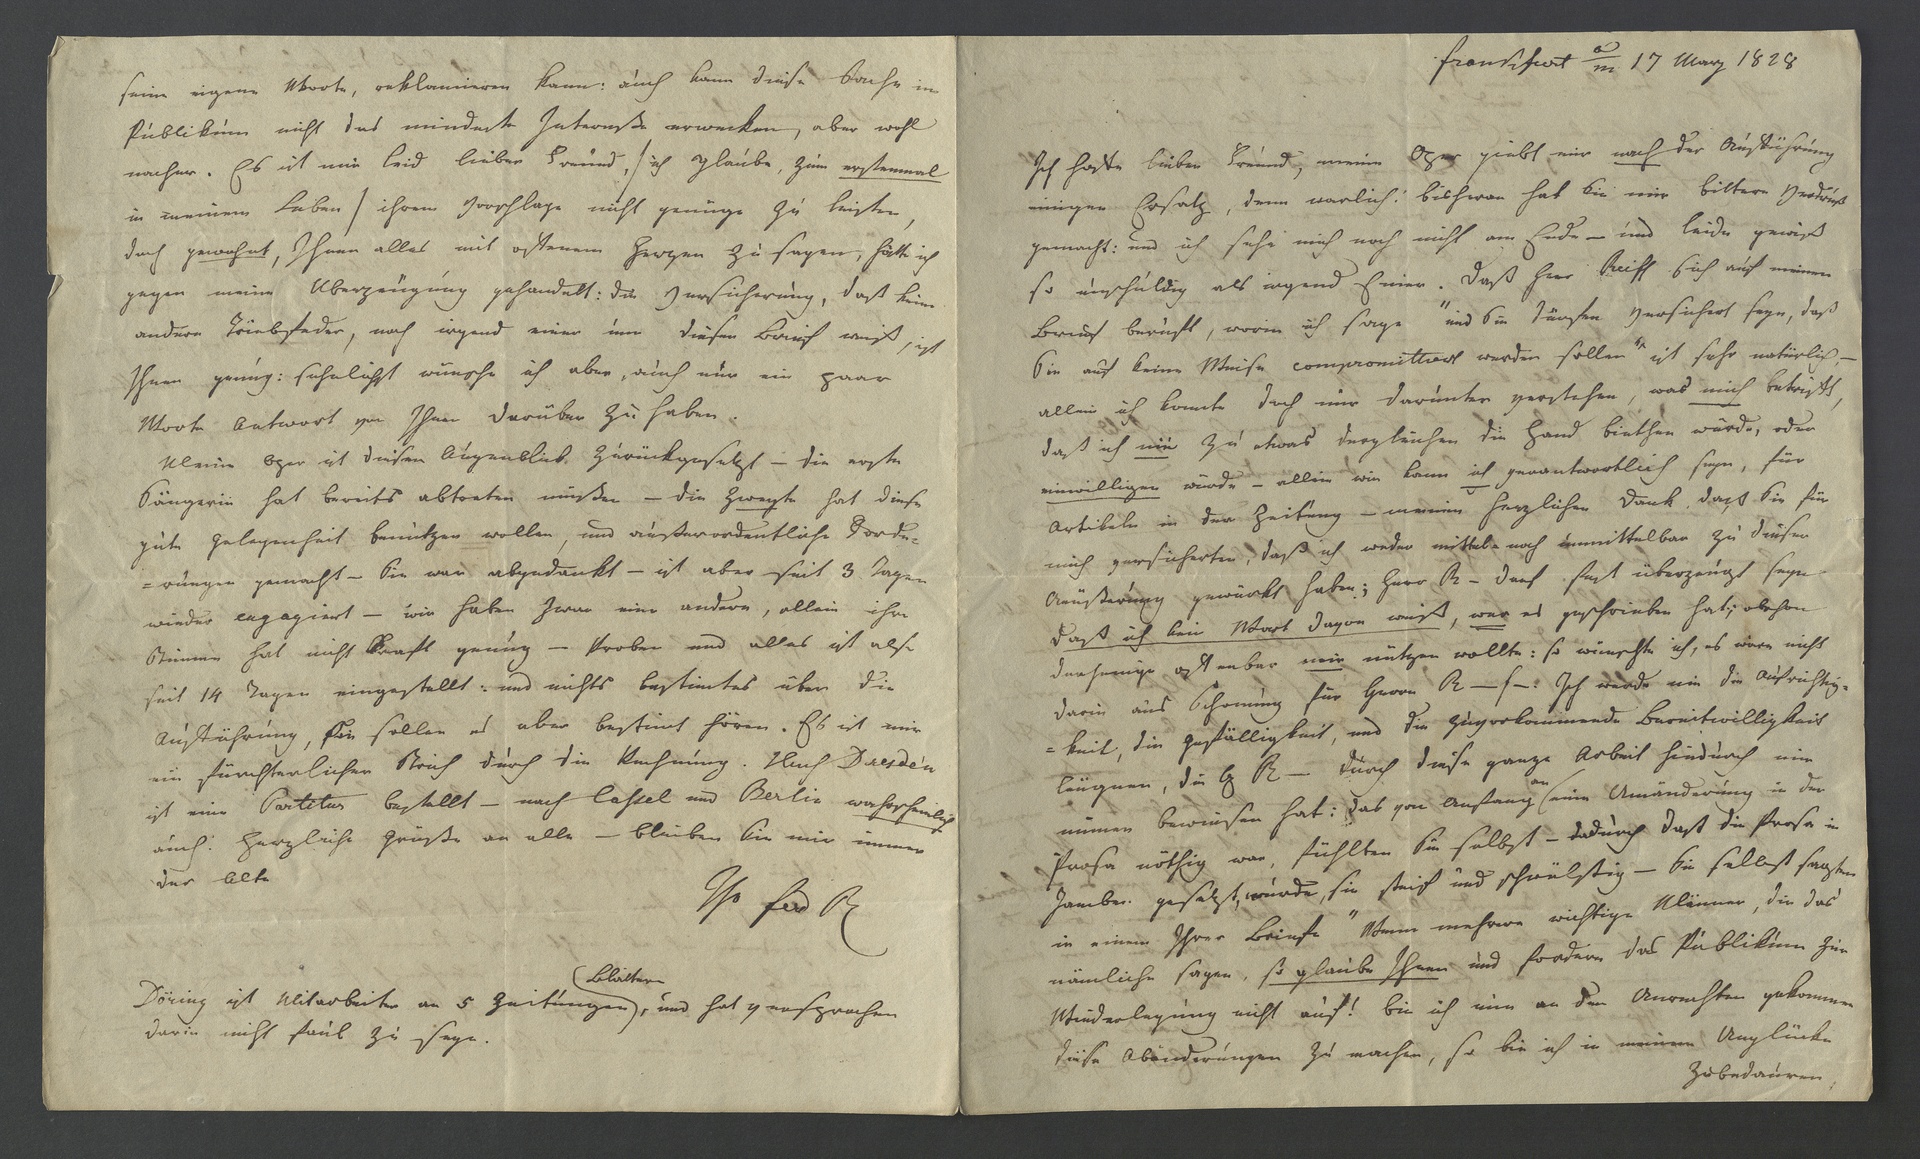 Frankfurt a/m 17 März 1828
Ich hoffe lieber Freund, meine Oper giebt mir nach der Aufführung
einigen Ersatz, denn warlich! bisheran hat Sie mir bittern Verdruß
gemacht: und ich sehe mich noch nicht am Ende – und leide gewiß
so unschuldig als irgend Einer. Daß Herr Reiff sich auf meinen
Brief beruft, worin ich sage "und Sie dürfen versichert seyn, daß
Sie auf keine Weise compromittirt werden sollen" ist sehr natürlich –
allein ich konnte doch nur darunter verstehen, was mich betrifft,
daß ich nie zu etwas dergleichen die Hand biethen würde, oder
einwilligen würde – allein wie kann ich verantwortlich seyn, für
Artikeln in der Zeitung – meinen herzlichen Dank, daß Sie für
mich versicherten, daß ich weder mittel- noch unmittelbar zu dieser
Äußerung gewürkt habe; Herr R – darf fest überzeugt seyn
daß ich kein Wort davon weiß, wer es geschrieben hat; obschon
derjenige offenbar mir nützen wollte: so wünschte ich, es wäre nicht
darin aus Schonung für Herrn R – f –. Ich werde nie die Aufrichtig-
=keit, die Gefälligkeit, und die zuvorkommende Bereitwilligkeit
läugnen, die H R – durch diese ganze Arbeit hindurch mir
immer bewiesen hat: das von Anfang an eine Umänderung in der
Prosa nöthig war, fühlten Sie selbst – dadurch daß die Prosa in
Jamben gesetzt wurde, sie steif und schwülstig – Sie selbst sagten
in einem Ihrer Briefe "Wenn mehrere wichtige Männer, die das
nämliche sagen, so glaube Ihnen und fordern das Publikum zur
Wiederlegung nicht auf! bin ich nun an den Unrechten gekommen
diese Abänderungen zu machen, so bin ich in meinem Unglücke
zu bedauren.
seine eigene Worte, reklamieren kann: auch kann diese Sache im
Publikum nicht das mindeste Interesse erwecken, aber wohl
nachher. Es ist mir leid lieber Freund, /ich glaube, zum erstenmal
in meinem Leben/ ihrem Vorschlage nicht genüge zu leisten,
doch gewohnt, Ihnen alles mit offenem Herzen zu sagen, hätte ich
gegen meine Überzeugung gehandelt: die Versicherung, daß keine
andere Triebfeder, noch irgend einer um diesen Brief weiß, ist
Ihnen genug: sehnlichst wünsche ich aber, auch nur ein paar
Worte Antwort von Ihnen darüber zu haben.
Meine Oper ist diesen Augenblick zurückgesetzt – die erste
Sängerin hat bereits abtreten müßen – die zweyte hat diese
gute Gelegenheit benützen wollen, und außerordentliche Forde-
=rungen gemacht – Sie war abgedankt – ist aber seit 3 Tagen
wieder engagiert – wir haben zwar eine andere, allein ihre
Stimme hat nicht Kraft genug – Proben und alles ist also
seit 14 Tagen eingestellt: und nichts bestimtes über die
Aufführung, Sie sollen es aber bestimt hören. Es ist mir
ein fürchterlicher Strich durch die Rechnung. Nach Dresden
ist eine Partitur bestellt – nach Cassel und Berlin wahrscheinlich
auch. Herzliche Grüße an alle – bleiben Sie mir immer
der Alte
Ihr Ferd R
Blättern
Döring ist Mitarbeiter an 5 Zeitungen, und hat versprochen
darin nicht faul zu seyn.